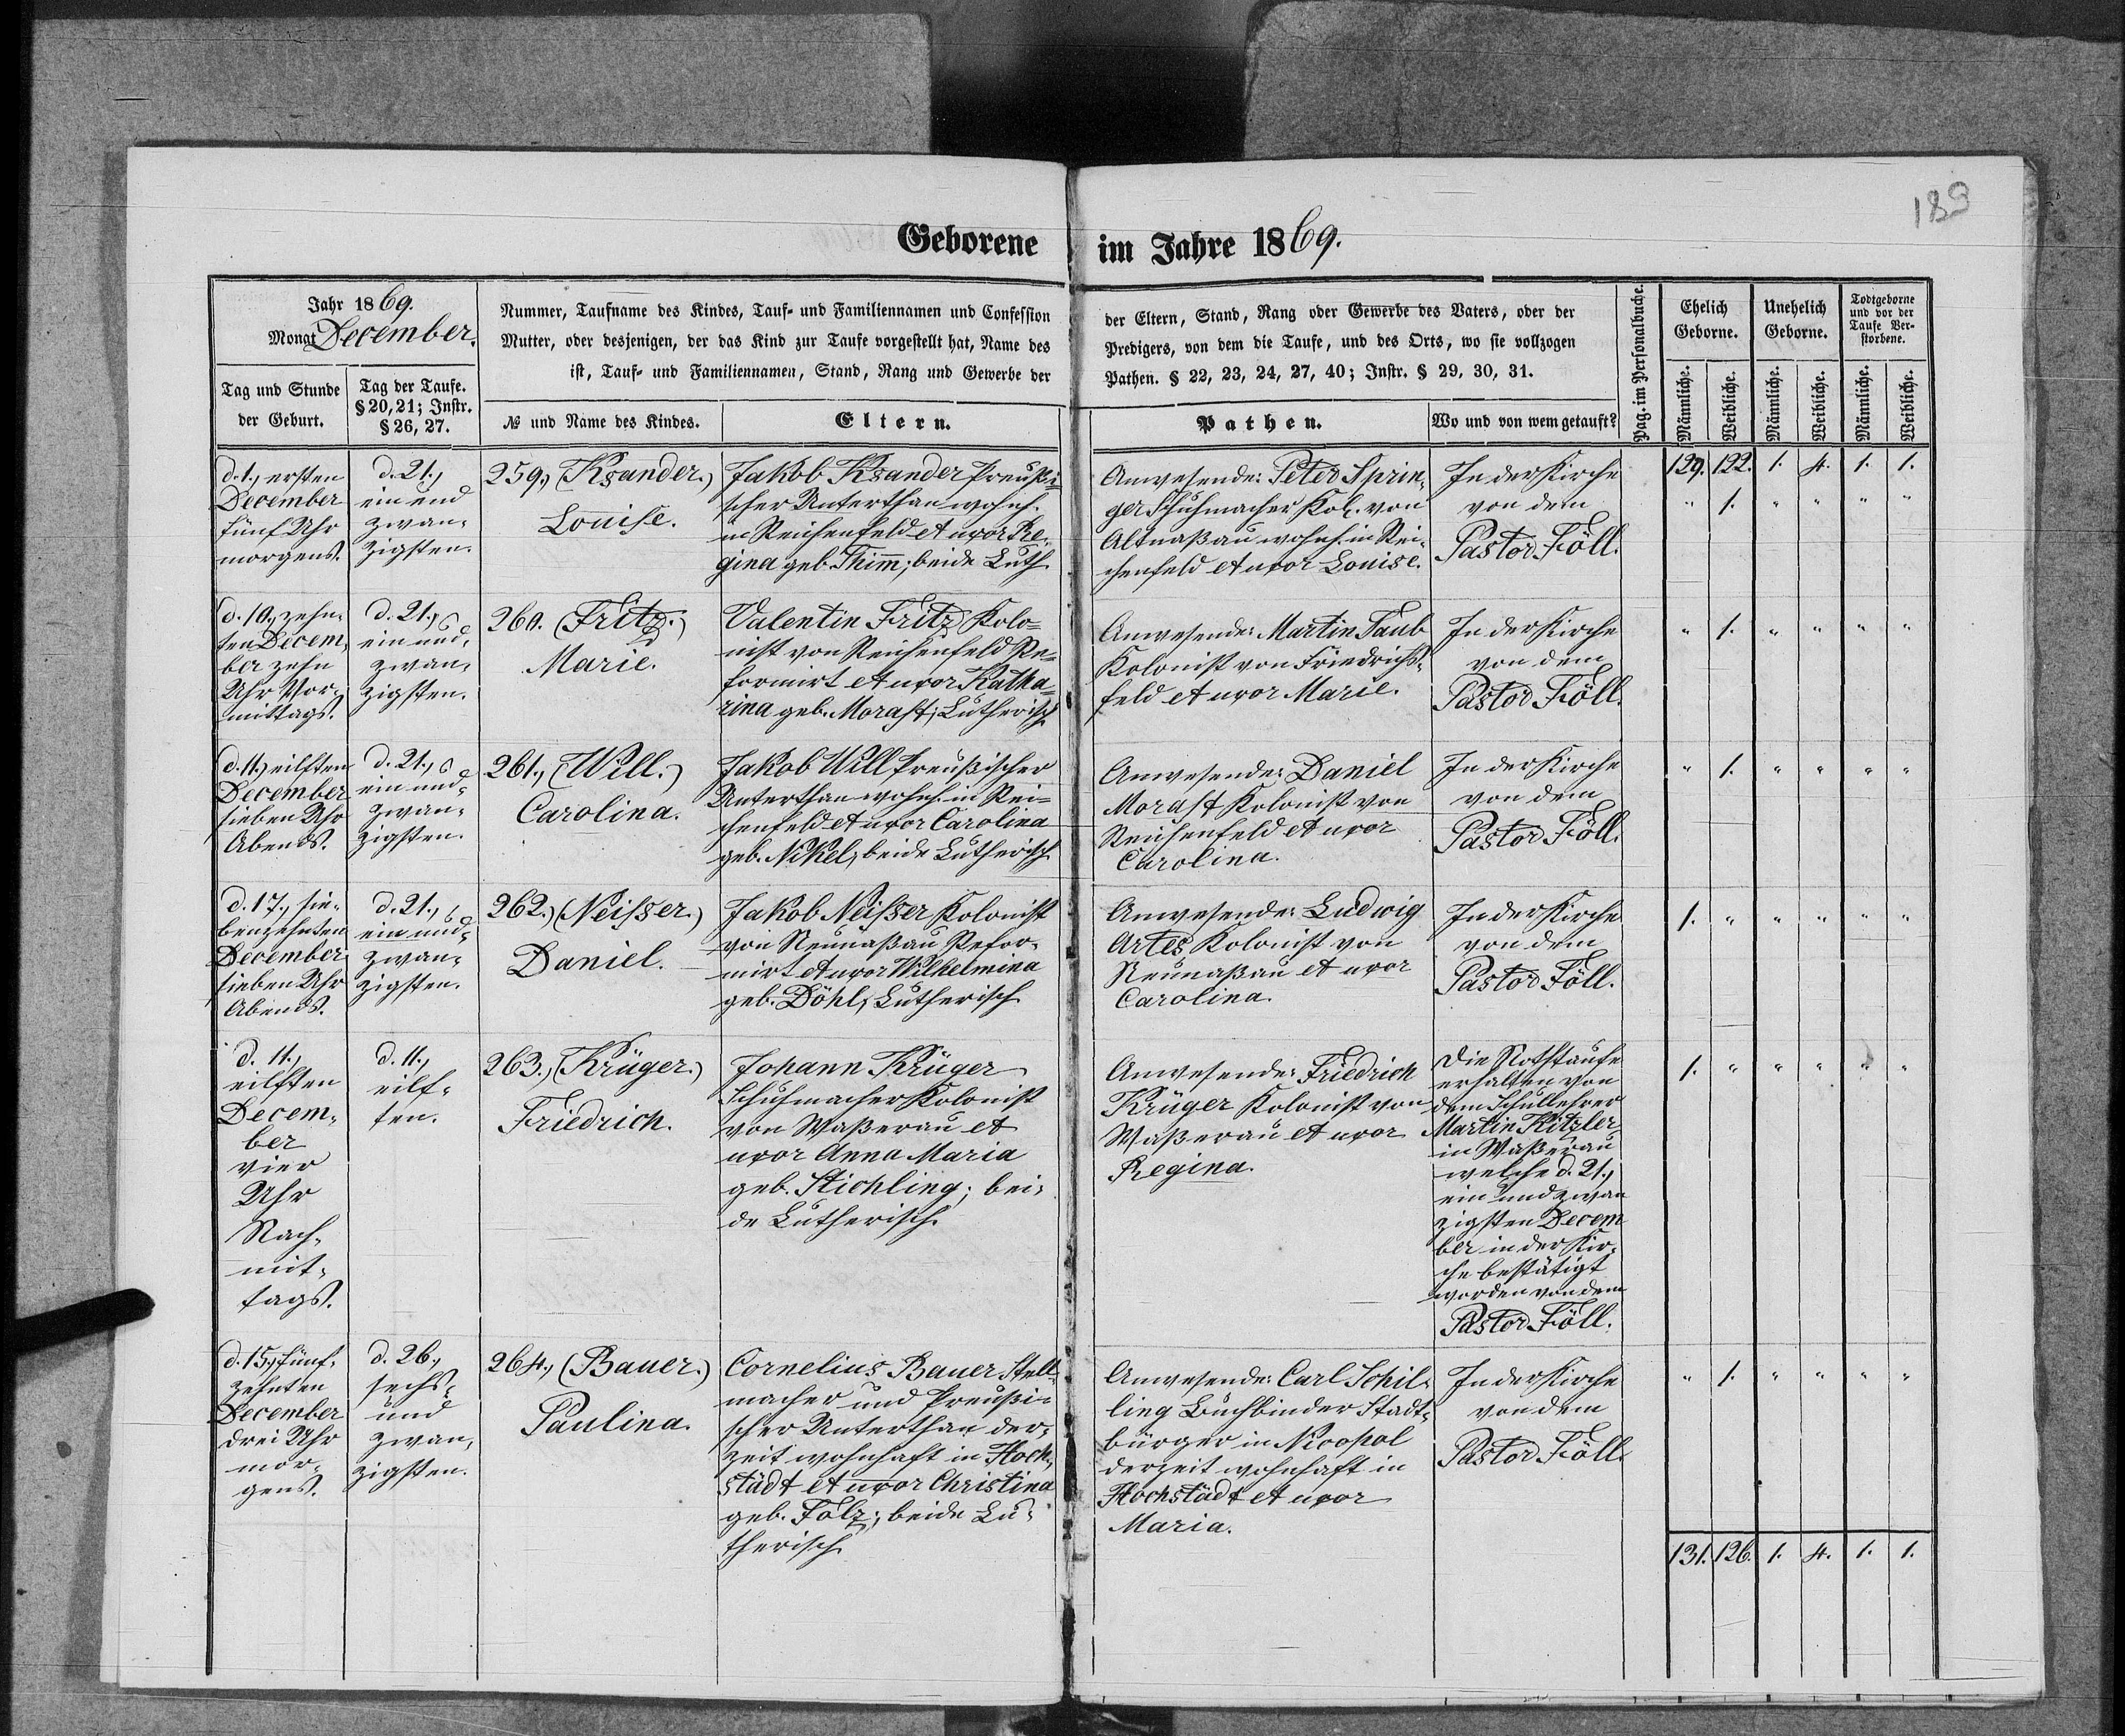 189
Geborene im Jahre 1869.
Jahr 1869.
Monat December.
Nummer, Taufname des Kindes, Tauf- und Familiennamen und Confession
Mutter, oder desjenigen, der das Kind zur Taufe vorgestellt hat, Name des
ist, Tauf- und Familiennamen, Stand, Rang und Gewerbe der
der Eltern, Stand, Rang oder Gewerbe des Vaters, oder der
Predigers, von dem die Taufe, und des Orts, wo sie vollzogen
Pathen. § 22, 23, 24, 27, 40; Instr. § 29, 30, 31.
Pag. im Personalbuche.
Ehelich
Geborne.
Unehelich
Geborne.
Todtgeborne
und vor der
Taufe Ver-
storbene.
Tag und Stunde
der Geburt.
Tag der Taufe.
§ 20, 21; Instr.
§ 26, 27.
№ und Name des Kindes.
Eltern.
Pathen.
Wo und von wem getauft?
Männliche.
Weibliche.
Männliche.
Weibliche.
Männliche.
Weibliche.
129. 122. 1. 4. 1. 1.
d. 1., ersten
December
fünf Uhr
morgens.
d. 21.,
ein und
zwan-
zigsten.
259., (Ksander.)
Louise.
Jakob Ksander Preußi-
scher Unterthan wohnh.
in Reichenfeld et uxor Re-
gina geb. Thim̅; beide Luth.
Anwesende: Peter Sprin-
ger Schuhmacher Kol. von
Altnaßau wohnh. in Rei-
chenfeld et uxor Louise.
In der Kirche
von dem
Pastor Föll.
" 1. " " " "
d. 10., zehn-
ten Decem-
ber zehn
Uhr Vor-
mittags.
d. 21.,
ein und
zwan-
zigsten.
260. (Fritz.)
Marie.
Valentin Fritz Kolo-
nist von Reichenfeld Re-
formirt et uxor Katha-
rina geb. Morast; Lutherisch
Anwesende: Martin Taub
Kolonist von Friedrichs-
feld et uxor Marie.
In der Kirche
von dem
Pastor Föll.
" 1. " " " "
d. 11.) eilften
December
sieben Uhr
Abends.
d. 21.,
ein und
zwan-
zigsten.
261., (Will.)
Carolina.
Jakob Will Preußischer
Unterthan wohnh. in Rei-
chenfeld et uxor Carolina
geb. Nikel, beide Lutherisch
Anwesende: Daniel
Morast Kolonist von
Reichenfeld et uxor
Carolina.
In der Kirche
von dem
Pastor Föll.
" 1. " " " "
d. 17., sie-
benzehnten
December
sieben Uhr
Abends.
d. 21.,
ein und
zwan-
zigsten.
262.) (Neisser.)
Daniel.
Jakob Neisser Kolonist
von Neunaßau Refor-
mirt et uxor Wilhelmina
geb. Döhl, Lutherisch
Anwesende: Ludwig
Artes Kolonist von
Neunaßau et uxor
Carolina.
In der Kirche
von dem
Pastor Föll.
1. " " " " "
d. 11.,
eilften
Decem-
ber
vier
Uhr
Nach-
mit-
tags.
d. 11.,
eilf-
ten.
263., (Krüger.)
Friedrich.
Johann Krüger
Schuhmacher Kolonist
von Waßerau et
uxor Anna Maria
geb. Stichling; bei-
de Lutherisch.
Anwesende: Friedrich
Krüger Kolonist von
Waßerau et uxor
Regina.
Die Nothtaufe
erhalten von
dem Schullehrer
Martin Kitzler
in Waßerau
welche d. 21.,
ein und zwan
zigsten Decem
ber in der Kir-
che bestätigt
worden von dem
Pastor Föll.
1. " " " " "
d. 15., fünf-
zehnten
December
drei Uhr
mor-
gens.
d. 26.,
sechs-
und
zwan-
zigsten.
264., (Bauer.)
Paulina.
Cornelius Bauer Stell-
macher und Preußi-
scher Unterthan der-
zeit wohnhaft in Hoch-
städt et uxor Christina
geb. Folz; beide Lu-
therisch
Anwesende: Carl Schil-
ling Buchbinder Stadt-
bürger in Nicopol
derzeit wohnhaft in
Hochstädt et uxor
Maria.
In der Kirche
von dem
Pastor Föll.
" 1. " " " "
131. 126. 1. 4. 1. 1.